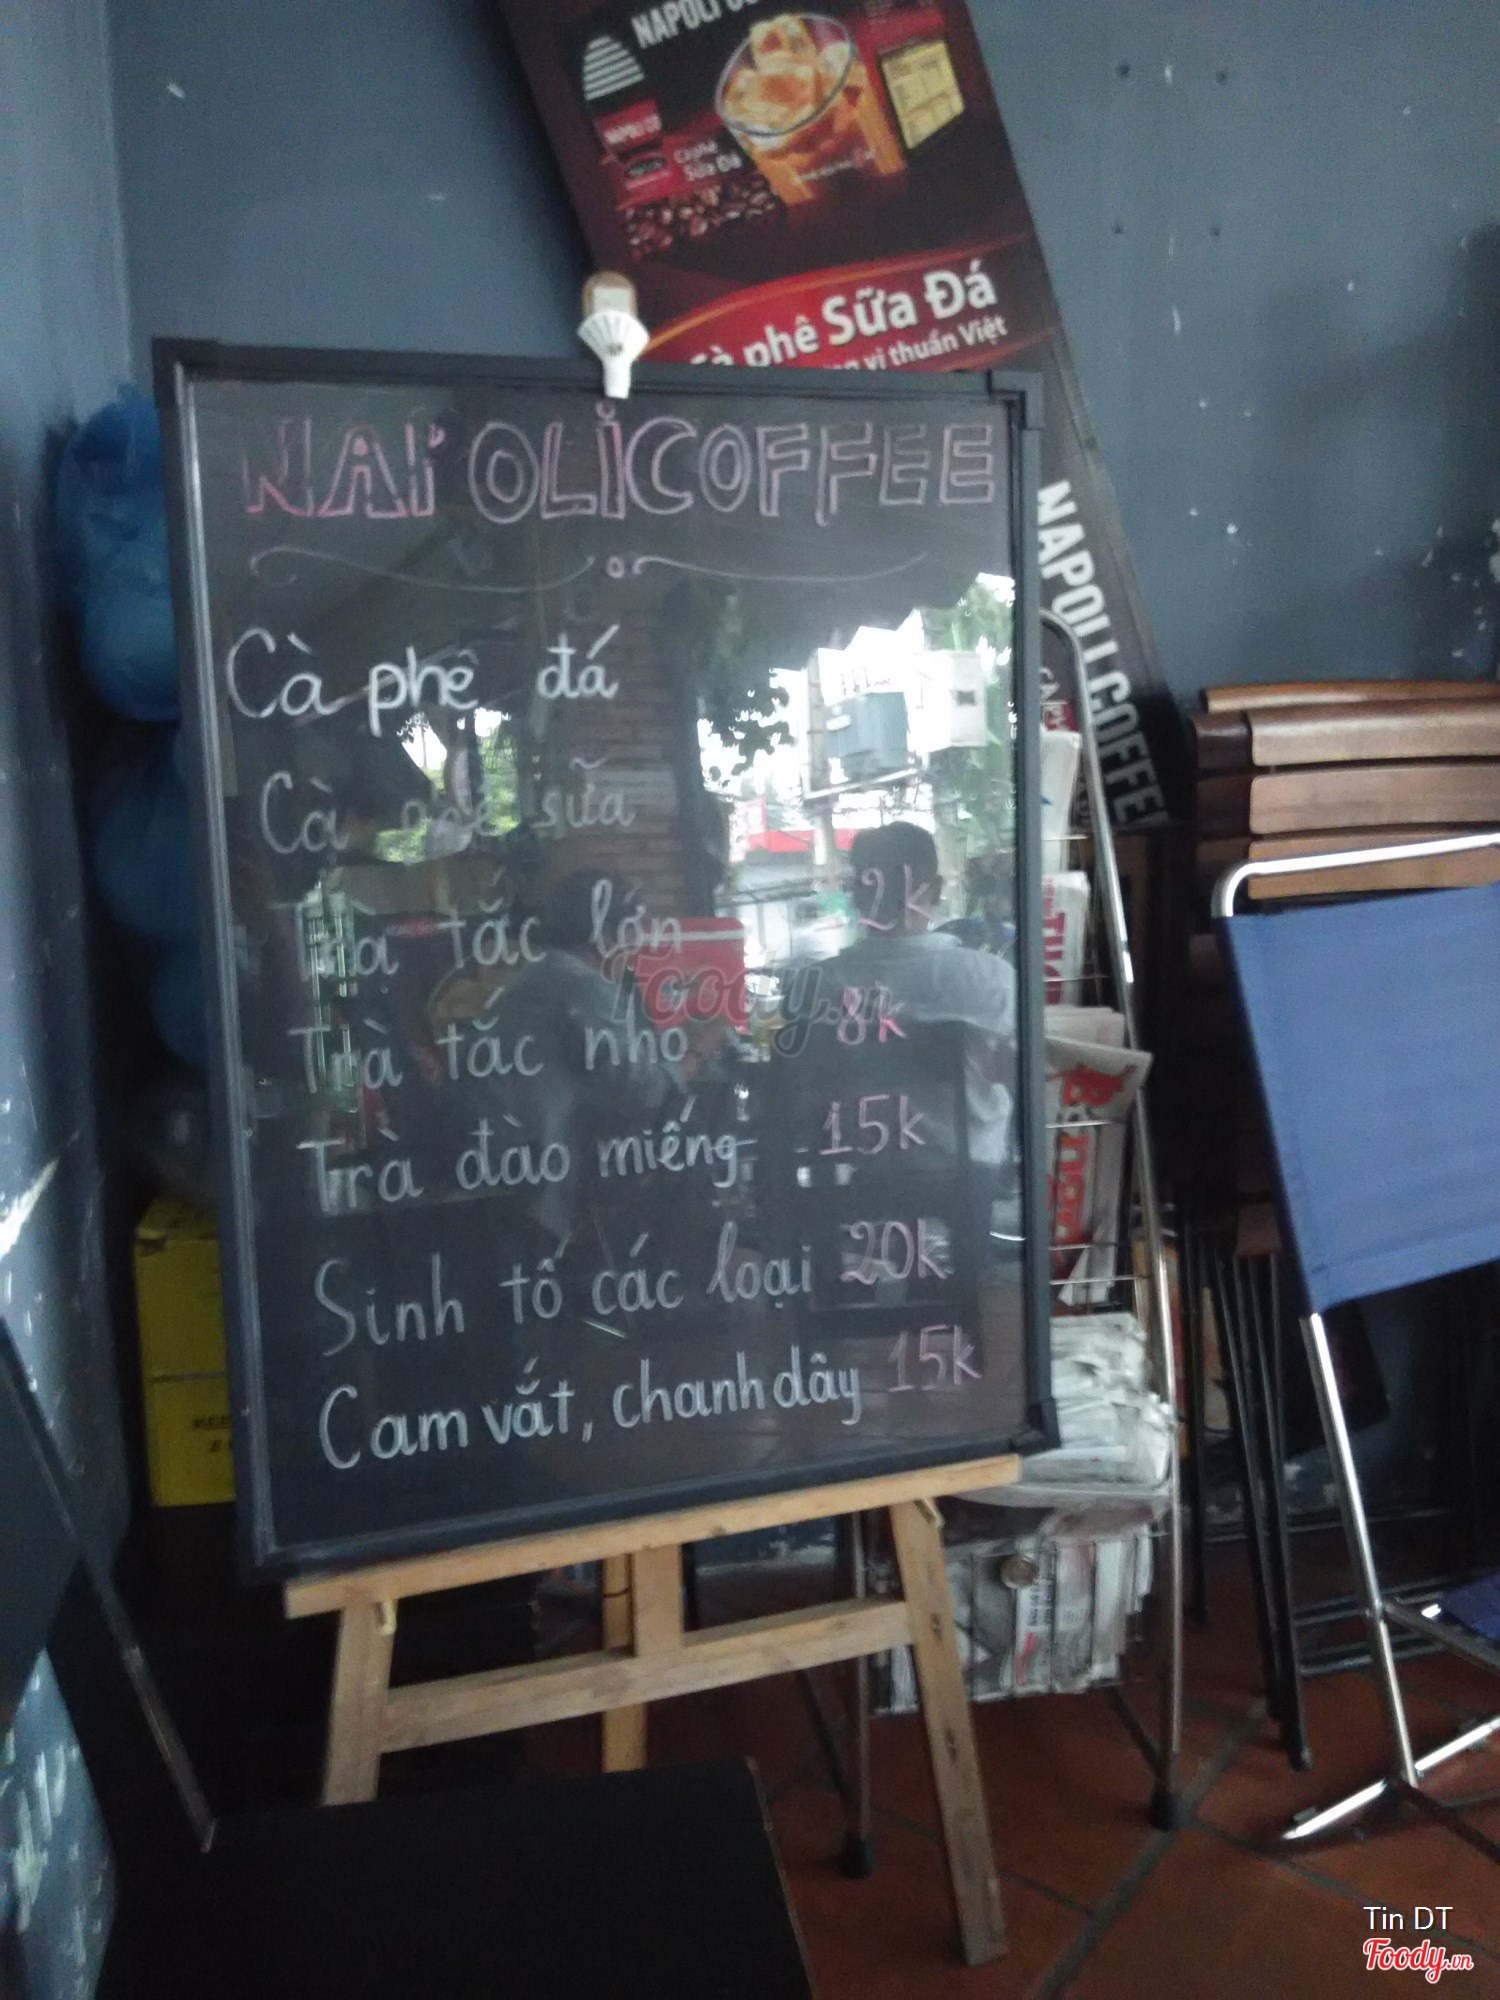 NAPOLI CO
NAPOLI CO
Cà phê
Sữa Đá
Cà phê Sữa Đá
vị thuần Việt
NAPOLICOFFEE
NAPOLI COFFEE
Cà phê đá
Cà phê sữa
Trà tắc lớn 12k
Trà tắc nhỏ 8k
Trà đào miếng 15k
Sinh tố các loại 20k
Cam vắt, chanh dây 15k
Foody.vn
Tin DT
Foody.vn